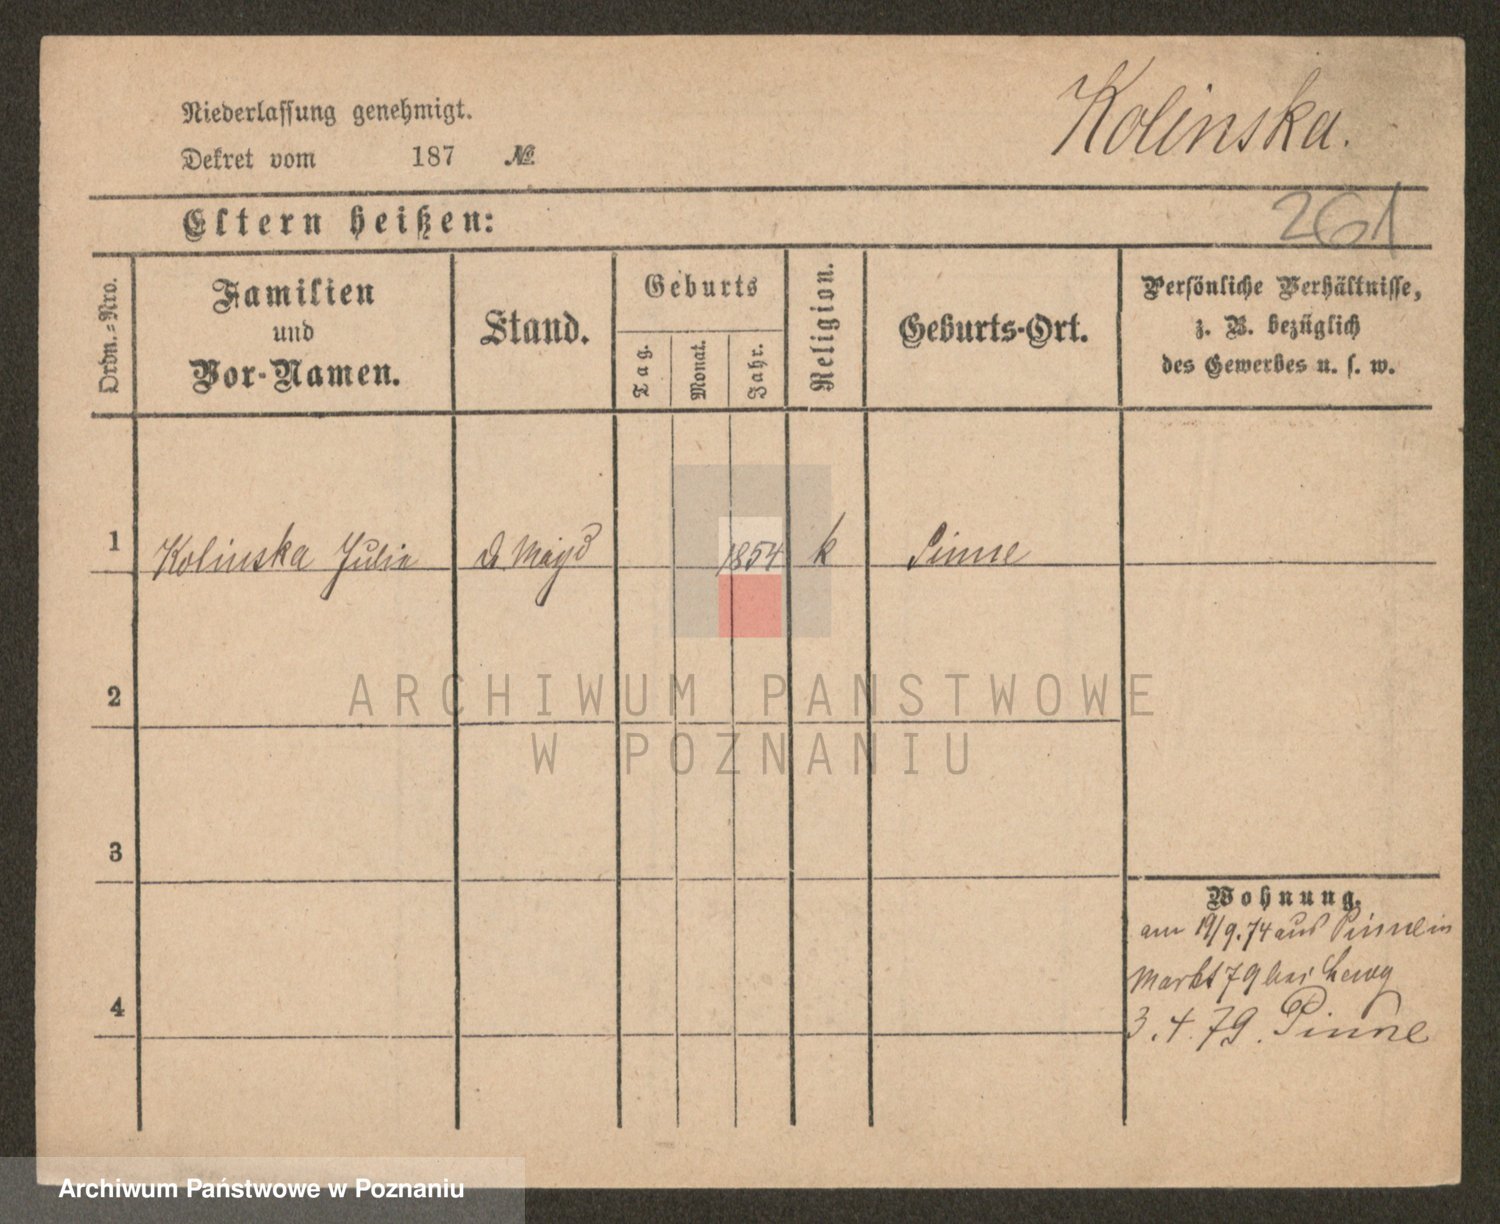 Kolinska.
Niederlassung genehmigt.
Dekret vom 187 №
261
Eltern heißen:
Ordn.-Nro.
Familien
und
Vor-Namen.
Stand.
Geburts
Tag.
Monat.
Jahr.
Religion.
Geburts-Ort.
Persönliche Verhältnisse,
z. B. bezüglich
des Gewerbes u. s. w.
1 Kolinska Julia Magd 1854 k Pinne
2
3
4
Wohnung.
am 19/9.74 aus Pinne in
Markt 79 bei
3.4.79. Pinne
ARCHIWUM PANSTWOWE
W POZNANIU
Archiwum Państwowe w Poznaniu